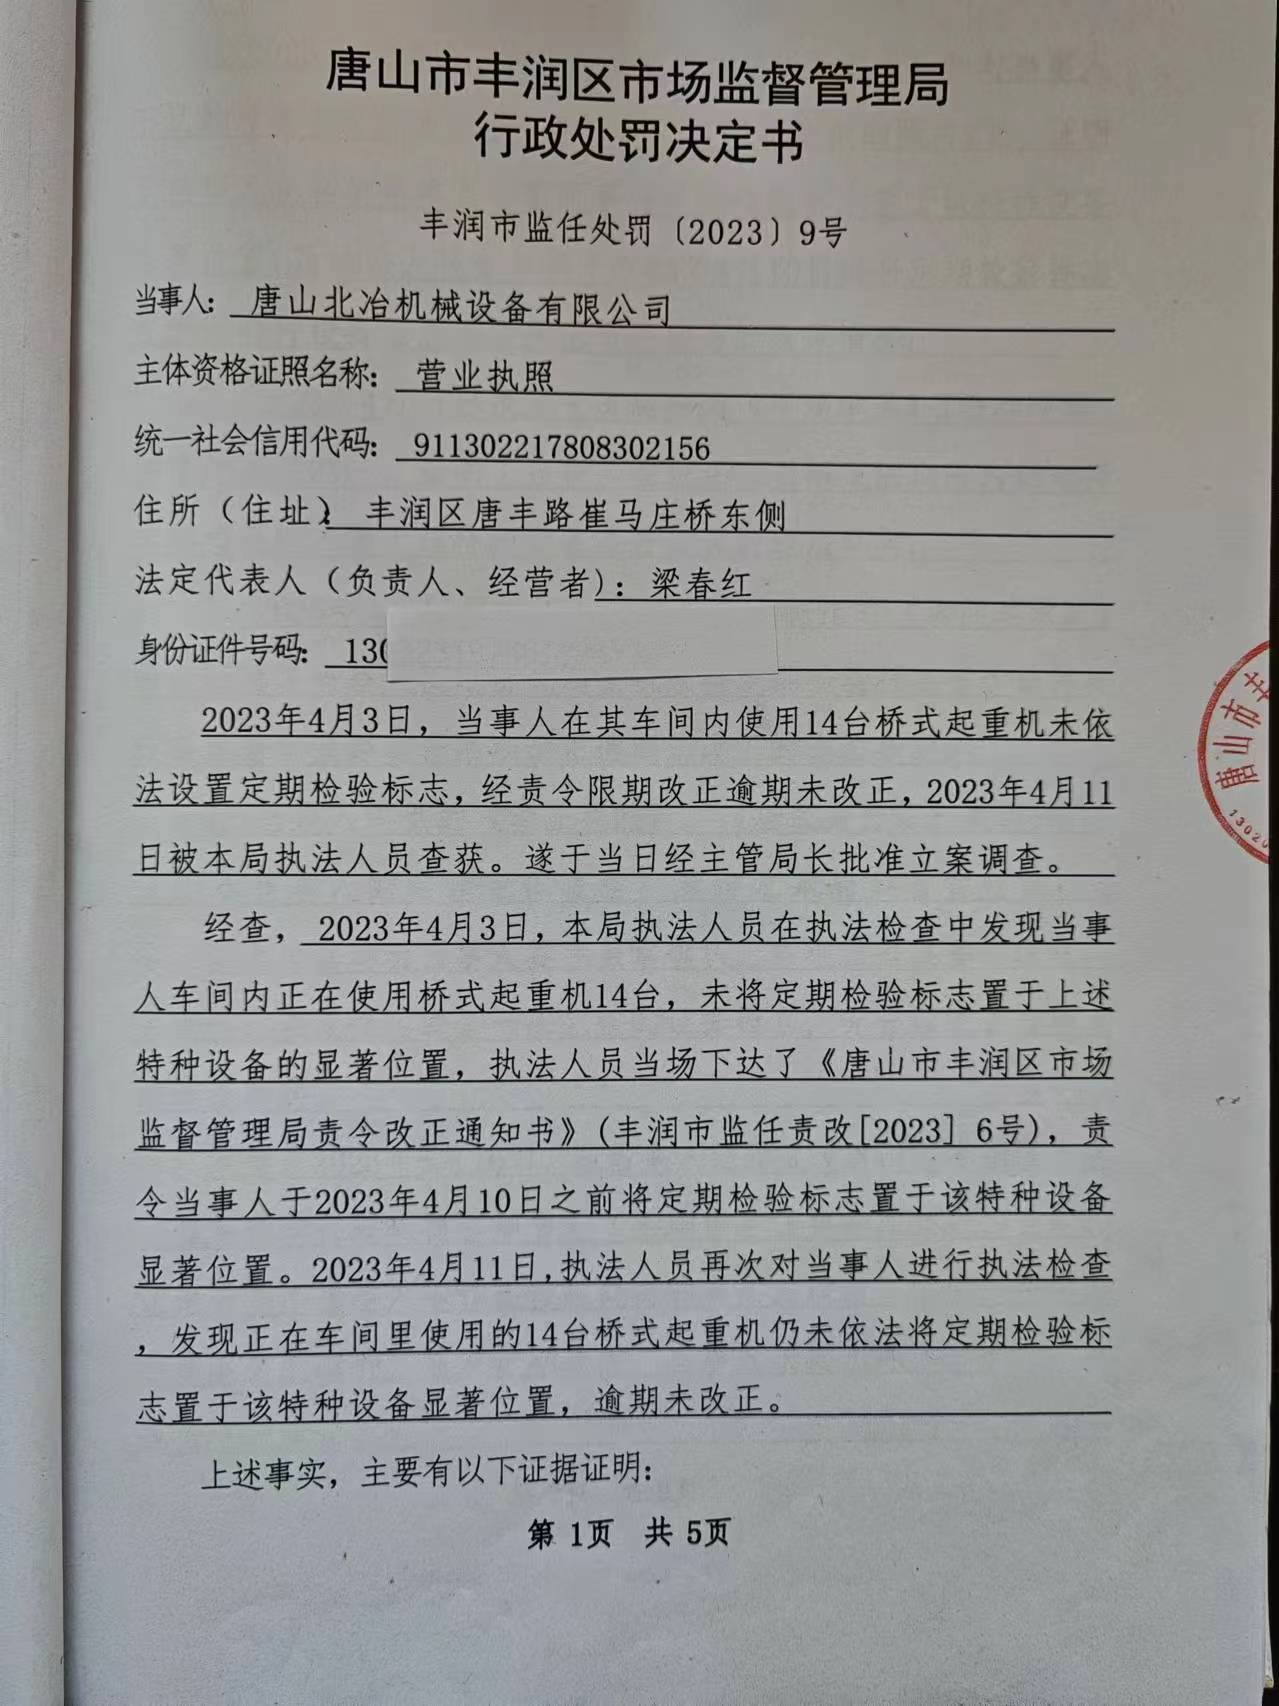 唐山市丰润区市场监督管理局
行政处罚决定书
丰润市监任处罚〔2023〕9号
当事人：唐山北冶机械设备有限公司
主体资格证照名称：营业执照
统一社会信用代码：911302217808302156
住所（住址）：丰润区唐丰路崔马庄桥东侧
法定代表人（负责人、经营者）：梁春红
身份证件号码：130
2023年4月3日，当事人在其车间内使用14台桥式起重机未依
法设置定期检验标志，经责令限期改正逾期未改正，2023年4月11
日被本局执法人员查获。遂于当日经主管局长批准立案调查。
经查，2023年4月3日，本局执法人员在执法检查中发现当事
人车间内正在使用桥式起重机14台，未将定期检验标志置于上述
特种设备的显著位置，执法人员当场下达了《唐山市丰润区市场
监督管理局责令改正通知书》(丰润市监任责改[2023］6号)，责
令当事人于2023年4月10日之前将定期检验标志置于该特种设备
显著位置。2023年4月11日,执法人员再次对当事人进行执法检查
，发现正在车间里使用的14台桥式起重机仍未依法将定期检验标
志置于该特种设备显著位置，逾期未改正。
上述事实，主要有以下证据证明：
第 1页 共 5页
唐山市丰
13020